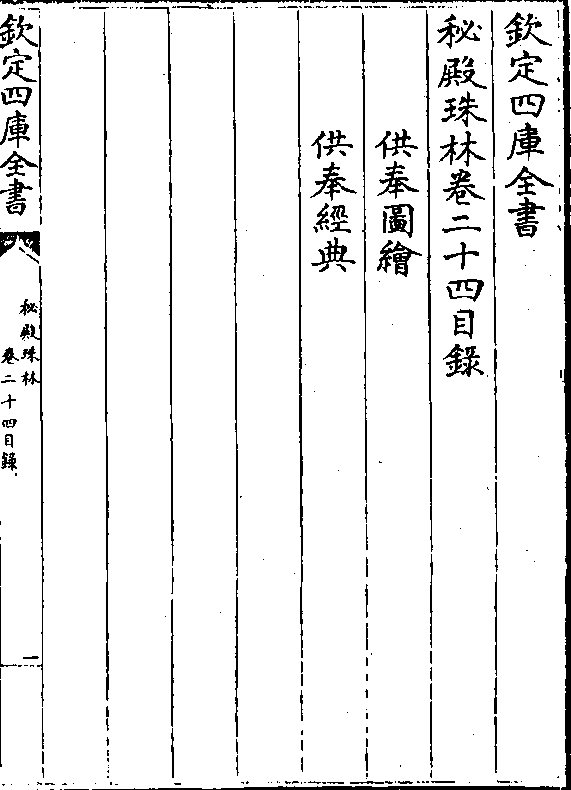 欽定四庫全書
秘殿珠林卷二十四目錄
供奉圖繪
供奉經典
欽定四庫全書
秘殿珠林
卷二十四目錄
一